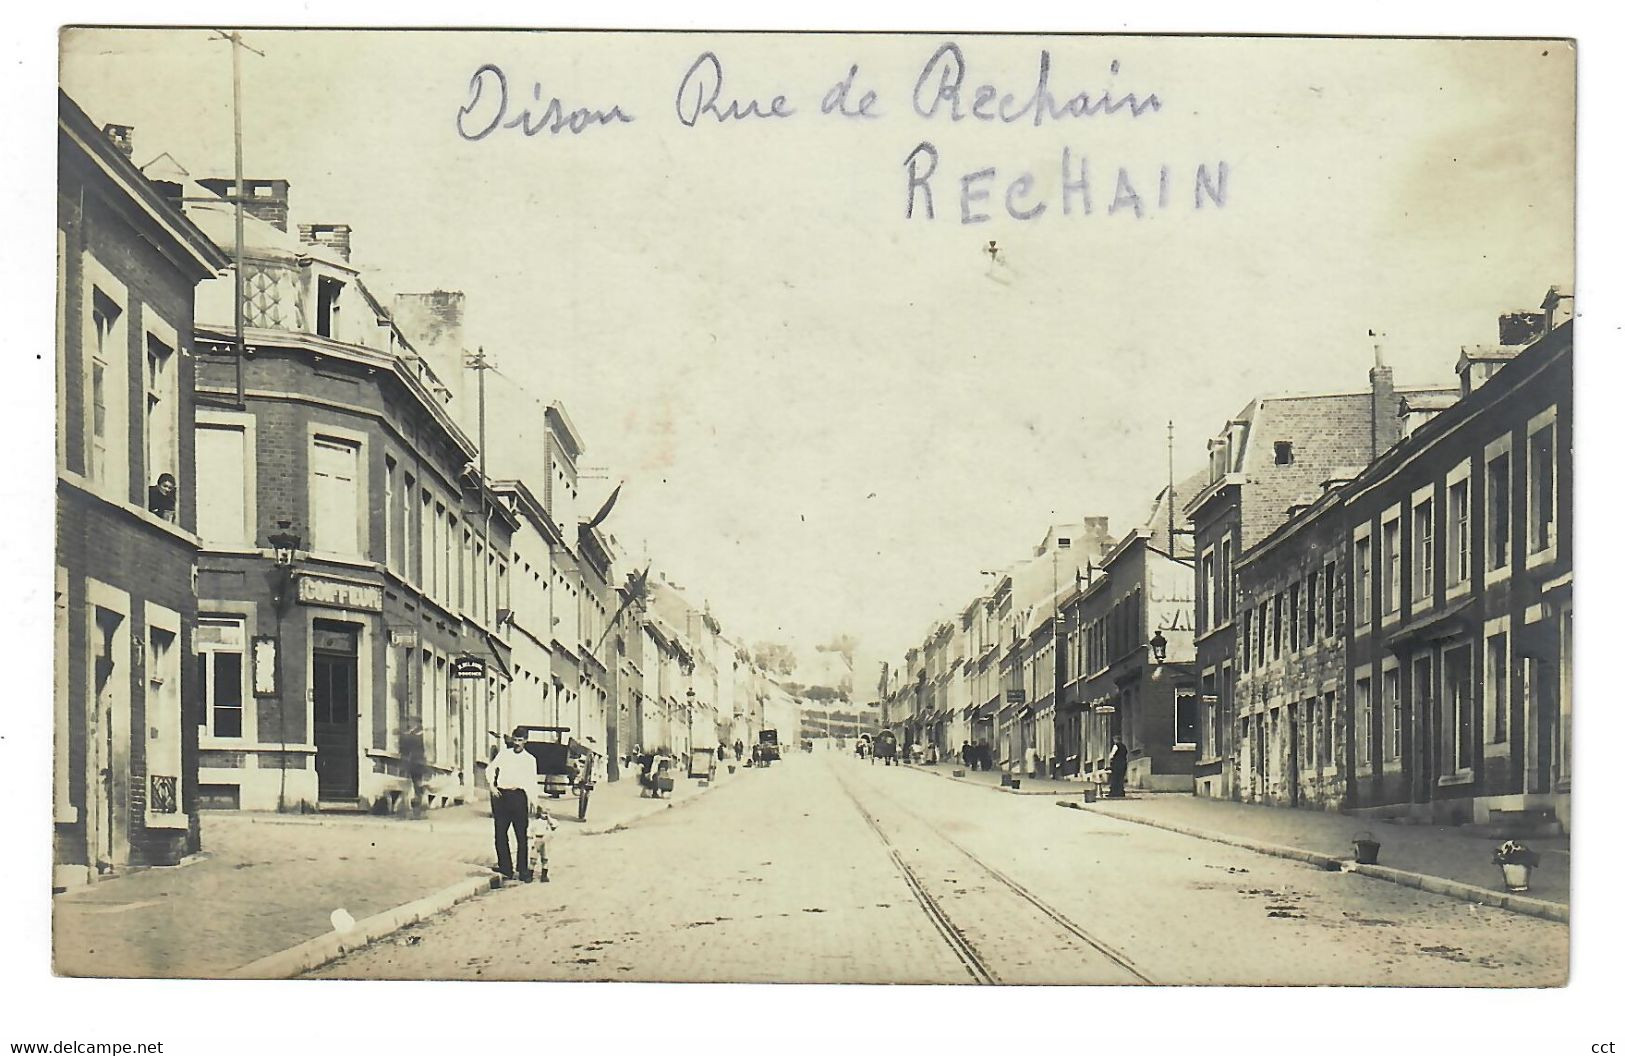 Dison Rue de Rechain
RECHAIN
COIFFEUR
SA
www.delcampe.net
cct